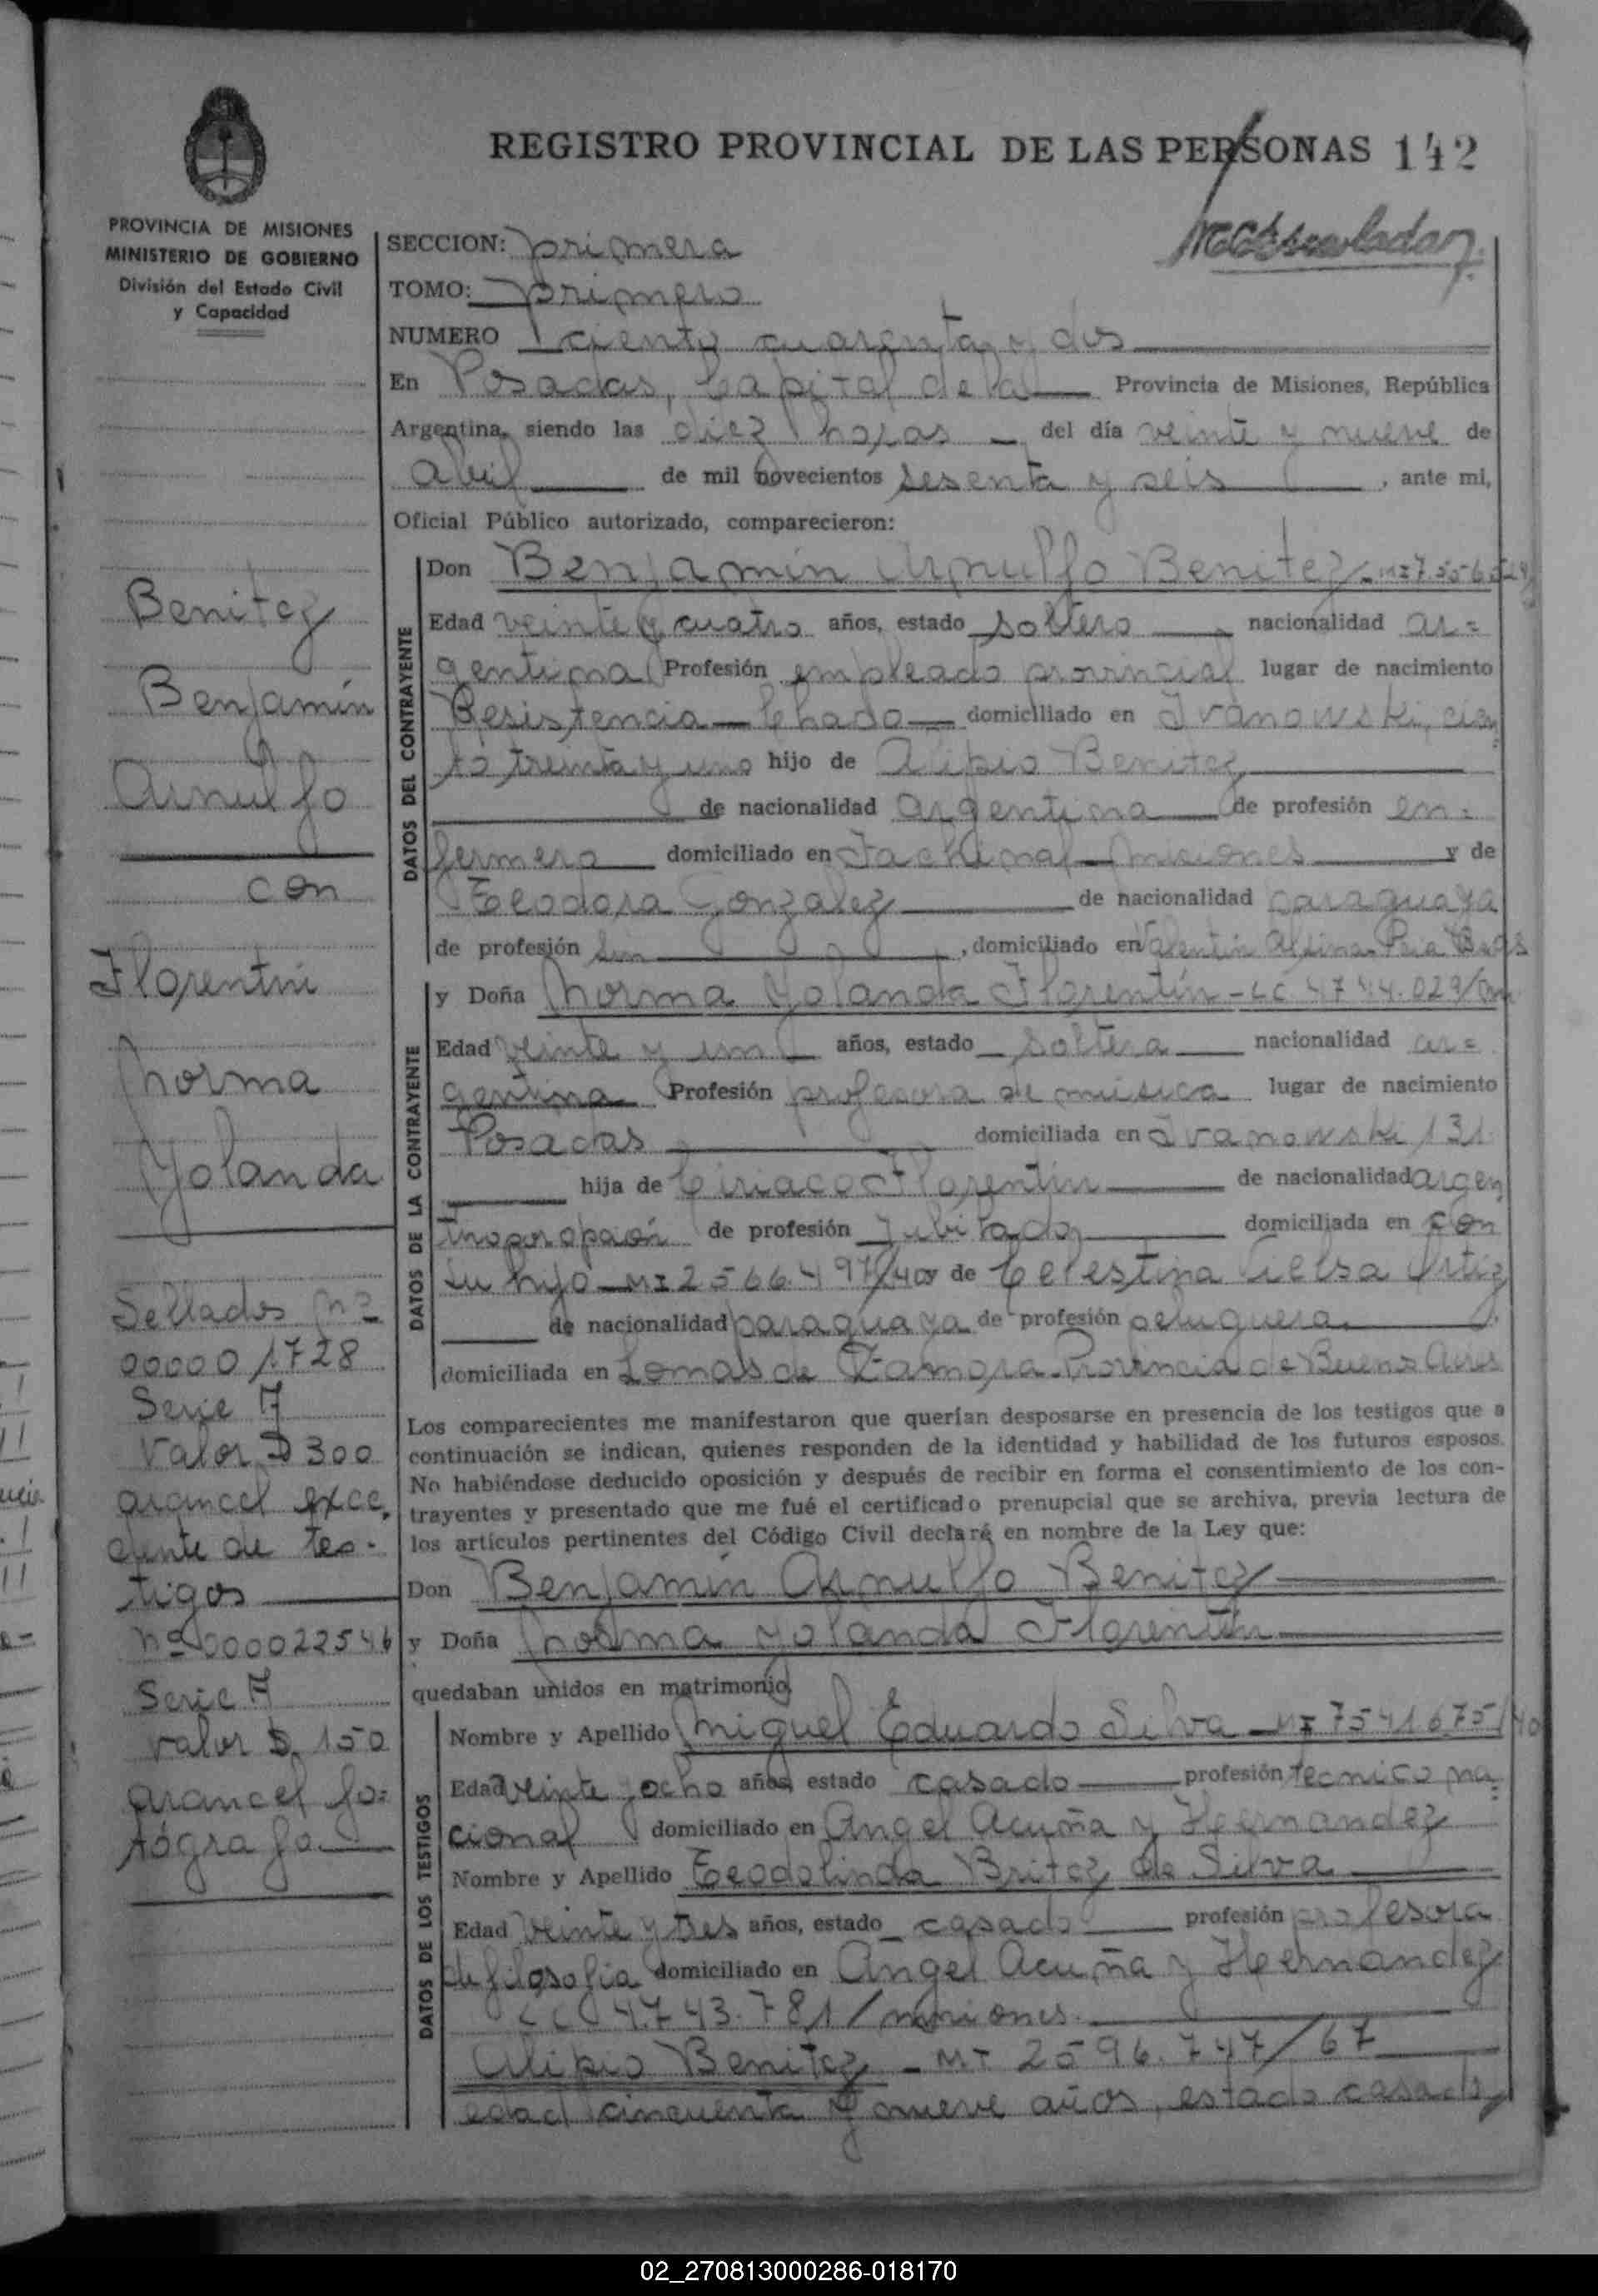 REGISTRO PROVINCIAL DE LAS PERSONAS 142
PROVINCIA DE MISIONES
MINISTERIO DE GOBIERNO
División del Estado Civil
y Capacidad
SECCION: primera
TOMO: primero
NUMERO ciento cuarenta y dos
En Posadas, Capital de la Provincia de Misiones, República
Argentina, siendo las diez horas del día veinte y nueve de
abril de mil novecientos sesenta y seis, ante mi,
Oficial Público autorizado, comparecieron:
Benitez
Benjamín
Arnulfo
con
Florentin
Norma
Yolanda
Sellados Nº
000001728
Serie A
Valor $ 300
arancel exce
dente de tes-
tigos
nº 000022546
Serie A
valor $ 150
arancel fo=
tógrafo
DATOS DEL CONTRAYENTE
Don Benjamín Arnulfo Benitez
Edad veinte y cuatro años, estado soltero nacionalidad ar=
gentina Profesión empleado provincial lugar de nacimiento
Resistencia - Chaco - domiciliado en Ivanowski, cien
to treinta y uno hijo de Alipio Benitez
de nacionalidad argentina de profesión en-
fermero domiciliado en Fachinal - Misiones y de
Teodora Gonzalez de nacionalidad paraguaya
de profesión sin, domiciliado en Valentin Alsina - Pcia Bs As
DATOS DE LA CONTRAYENTE
y Doña Norma Yolanda Florentín - LC 4744.029
Edad veinte y un años, estado soltera nacionalidad ar=
gentina Profesión profesora de música lugar de nacimiento
Posadas domiciliada en Ivanowski 131
hija de Ciriaco Florentín de nacionalidad argen
tino por opción de profesión Jubilado domiciliada en con
su hijo - MI 2566.497/40 y de Celestina Cielsa Ortiz
de nacionalidad paraguaya de profesión peluquera
domiciliada en Lomas de Zamora - Provincia de Buenos Aires
Los comparecientes me manifestaron que querían desposarse en presencia de los testigos que a
continuación se indican, quienes responden de la identidad y habilidad de los futuros esposos.
No habiéndose deducido oposición y después de recibir en forma el consentimiento de los con-
trayentes y presentado que me fué el certificado prenupcial que se archiva, previa lectura de
los artículos pertinentes del Código Civil declaré en nombre de la Ley que:
Don Benjamín Arnulfo Benitez
y Doña Norma Yolanda Florentín
quedaban unidos en matrimonio
DATOS DE LOS TESTIGOS
Nombre y Apellido Miguel Eduardo Silva - MI 7541675/40
Edad veinte y ocho años, estado casado profesión tecnico na-
cional domiciliado en Angel Acuña y Hernandez
Nombre y Apellido Teodolinda Britez de Silva
Edad veinte y tres años, estado casado profesión profesora
de filosofia domiciliado en Angel Acuña y Hernandez
LC 4.743.781/misiones.
Alipio Benitez - MI 2596.747/67
edad cincuenta y nueve años, estado casado,
02_270813000286-018170